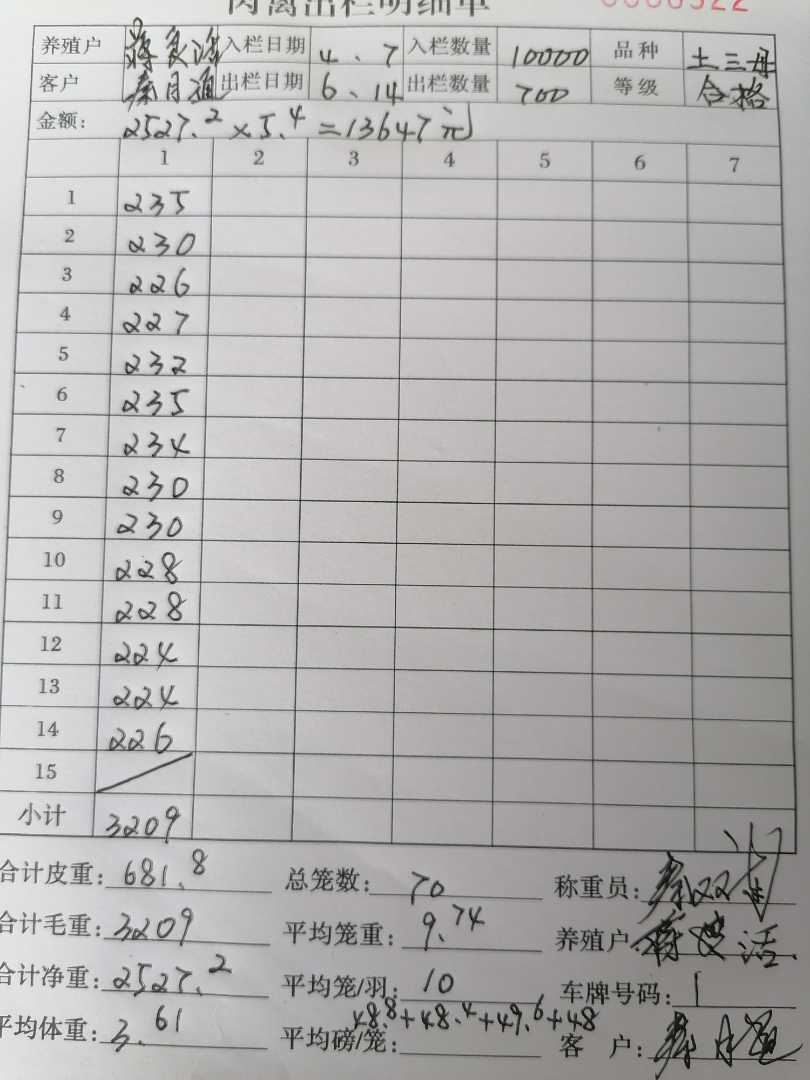 肉禽出栏明细单
养殖户 蒋良活 入栏日期 4、7 入栏数量 10000 品种 土三母
客户 秦月通 出栏日期 6、14 出栏数量 700 等级 合格
金额: 2527.2×5.4=13647元
1 2 3 4 5 6 7
1 235
2 230
3 226
4 227
5 232
6 235
7 234
8 230
9 230
10 228
11 228
12 224
13 224
14 226
15
小计 3209
合计皮重: 681.8 总笼数: 70 称重员:
合计毛重: 3209 平均笼重: 9.74 养殖户
合计净重: 2527.2 平均笼/羽: 10 车牌号码: 1
平均体重: 3.61 平均磅/笼: 48.8+48.4+49.6+48 客 户: 秦月通